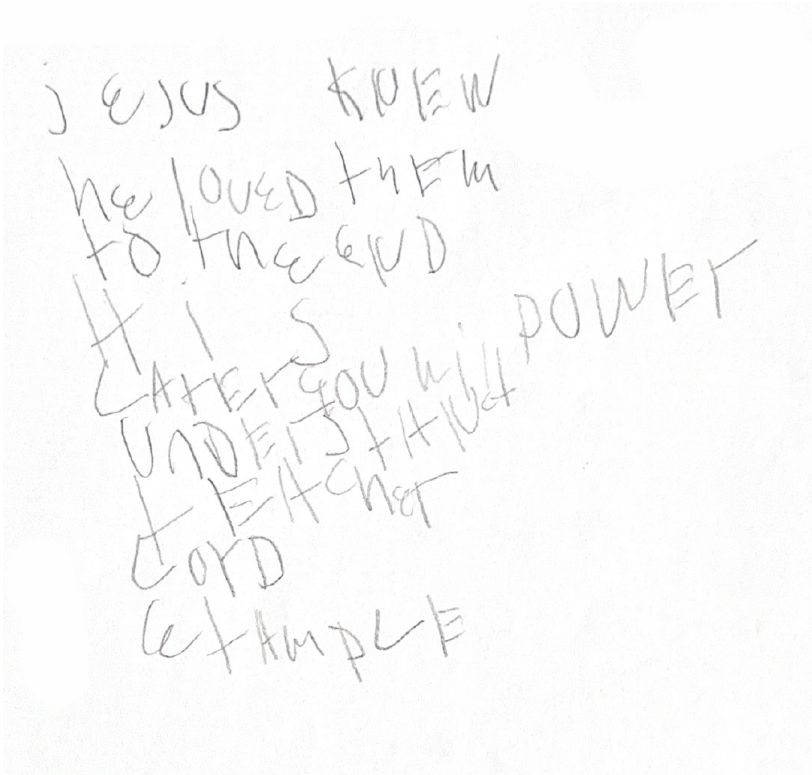 jesus KNEW
he loved thEm
to the eND
His POWEr
LAtEr you will
UnDErstAnd
tEAcher
LorD
exAmpLE